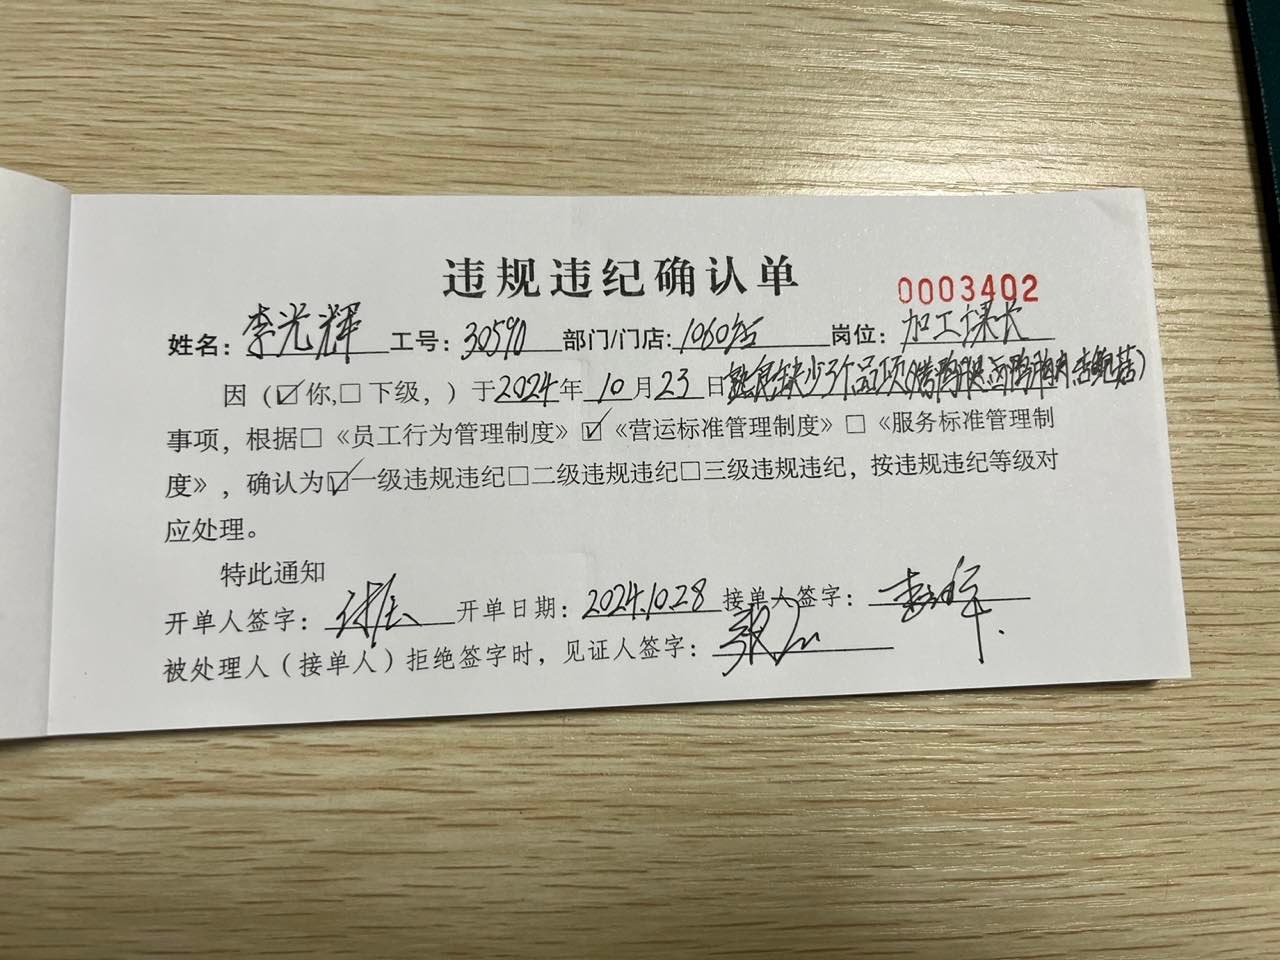 违规违纪确认单
0003402
姓名：李光辉 工号：30590 部门/门店：1060店 岗位：加工课长
因（☑你，□下级，）于2024年10月23日熟食缺少3个品项
事项，根据□《员工行为管理制度》☑《营运标准管理制度》□《服务标准管理制
度》，确认为☑一级违规违纪□二级违规违纪□三级违规违纪，按违规违纪等级对
应处理。
特此通知
开单人签字： 开单日期：2024.10.28 接单人签字：
被处理人（接单人）拒绝签字时，见证人签字：